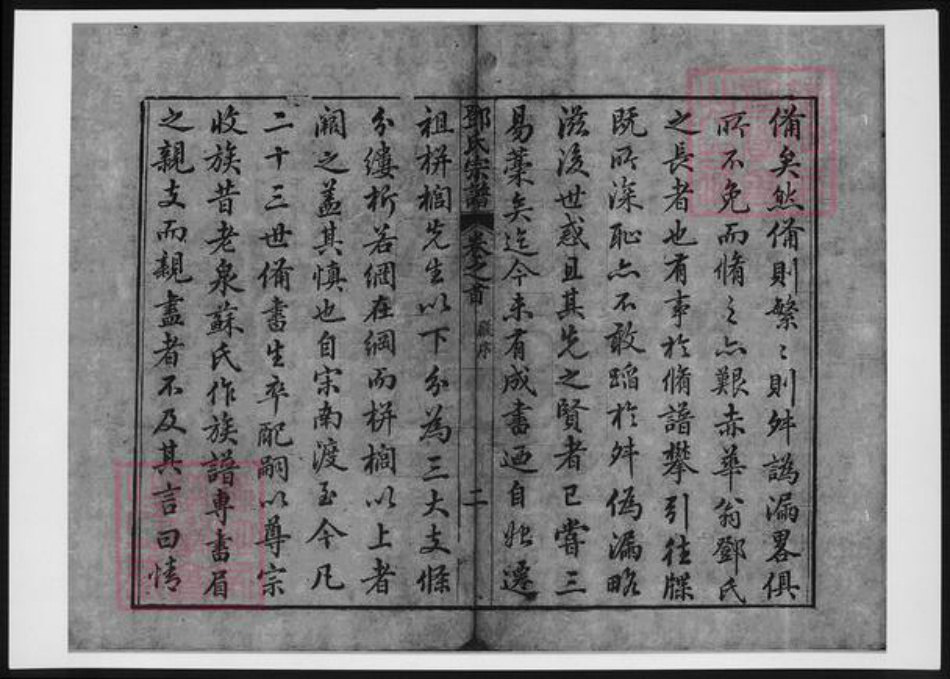 備矣然備則繁〻則舛譌漏畧俱
所不免而脩〻亦艱赤華翁鄧氏
之長者也有事於脩譜攀引往牒
既所深恥亦不敢蹈於舛偽漏略
滋後世惑且其先之賢者已嘗三
易藁矣迄今未有成書迺自始遷
鄧氏宗譜 卷之首 二
祖栟櫚先生以下分為三大支條
分縷析若網在綱而栟櫚以上者
闕之葢其慎也自宋南渡至今凡
二十三世備書生卒配嗣以尊宗
收族昔老泉蘇氏作族譜專書眉
之親支而親盡者不及其言曰情